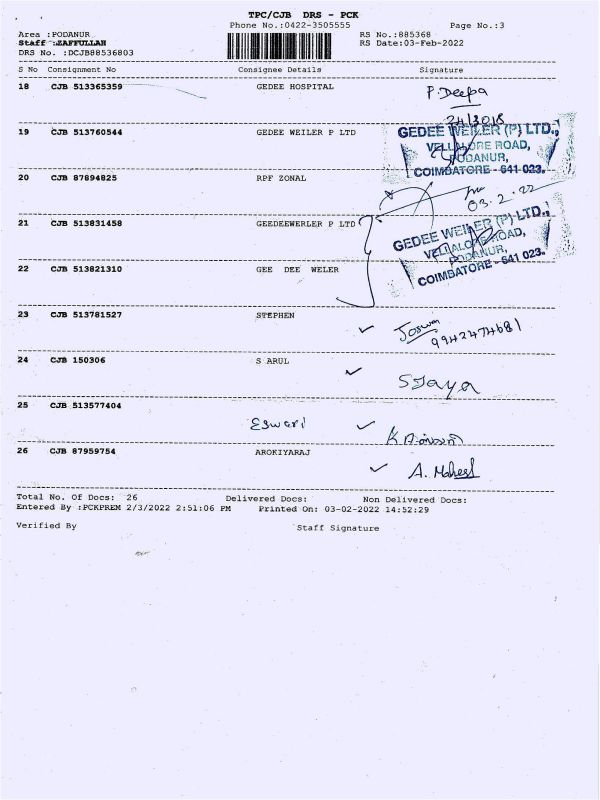 TPC/CJB DRS - PCK
Phone No.:0422-3505555 Page No.:3
Area :PODANUR RS No.:885368
Staff :ZAFFULLAH RS Date:03-Feb-2022
DRS No. :DCJB88536803
S No Consignment No Consignee Details Signature
18 CJB 513365359 GEDEE HOSPITAL P. Deepa
19 CJB 513760544 GEDEE WEILER P LTD
GEDEE WEILER (P) LTD.,
VELLALORE ROAD,
PODANUR,
COIMBATORE - 641 023.
20 CJB 87894825 RPF ZONAL
03.2.22
21 CJB 513831458 GEEDEEWERLER P LTD
GEDEE WEILER (P) LTD.,
VELLALORE ROAD,
PODANUR,
COIMBATORE - 641 023.
22 CJB 513821310 GEE DEE WELER
23 CJB 513781527 STEPHEN
9942474681
24 CJB 150306 S ARUL
S Jaya
25 CJB 513577404
Eswari
26 CJB 87959754 AROKIYARAJ
A. Mahesh
Total No. Of Docs: 26 Delivered Docs: Non Delivered Docs:
Entered By :PCKPREM 2/3/2022 2:51:06 PM Printed On: 03-02-2022 14:52:29
Verified By Staff Signature